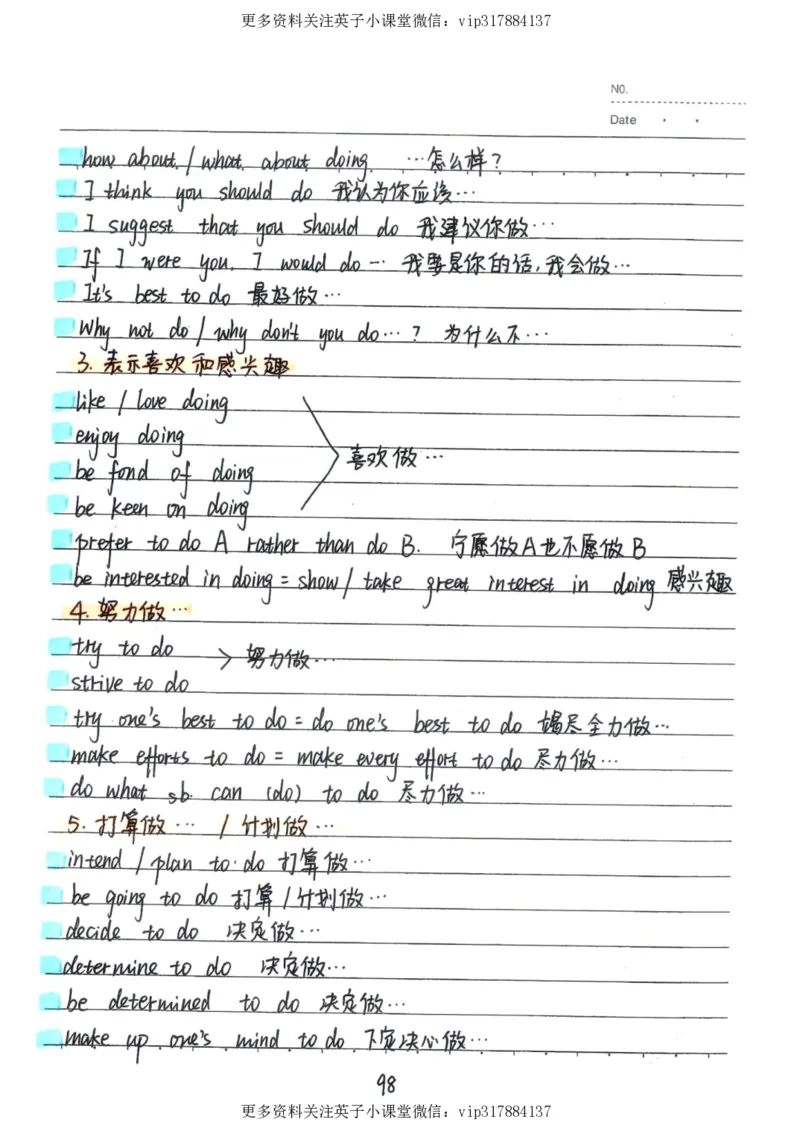 更多资料关注英子小课堂微信：vip317884137
NO.
Date · ·
how about / what about doing …怎么样？
I think you should do 我认为你应该…
I suggest that you should do 我建议你做…
If I were you, I would do … 我要是你的话，我会做…
It's best to do 最好做…
Why not do / why don't you do…？ 为什么不…
3. 表示喜欢和感兴趣
like / love doing
enjoy doing
喜欢做…
be fond of doing
be keen on doing
prefer to do A rather than do B. 宁愿做A也不愿做B
be interested in doing = show / take great interest in doing 感兴趣
4. 努力做…
try to do > 努力做…
strive to do
try one's best to do = do one's best to do 竭尽全力做…
make efforts to do = make every effort to do 尽力做…
do what sb. can (do) to do 尽力做…
5. 打算做… / 计划做…
intend / plan to do 打算做…
be going to do 打算 / 计划做…
decide to do 决定做…
determine to do 决定做…
be determined to do 决定做…
make up one's mind to do 下定决心做…
98
更多资料关注英子小课堂微信：vip317884137